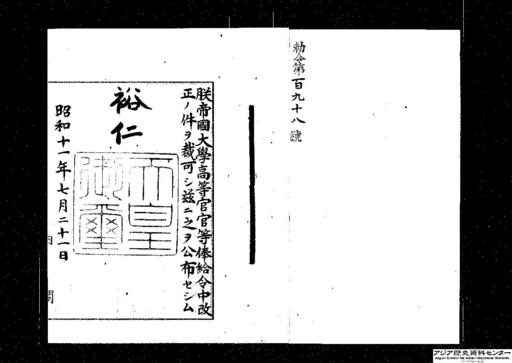 勅令第百九十八號
朕帝國大學高等官官等俸給令中改
正ノ件ヲ裁可シ茲ニ之ヲ公布セシム
裕仁
天皇
御璽
昭和十一年七月二十一日
内閣
アジア歴史資料センター
Japan Center for Asian Historical Records